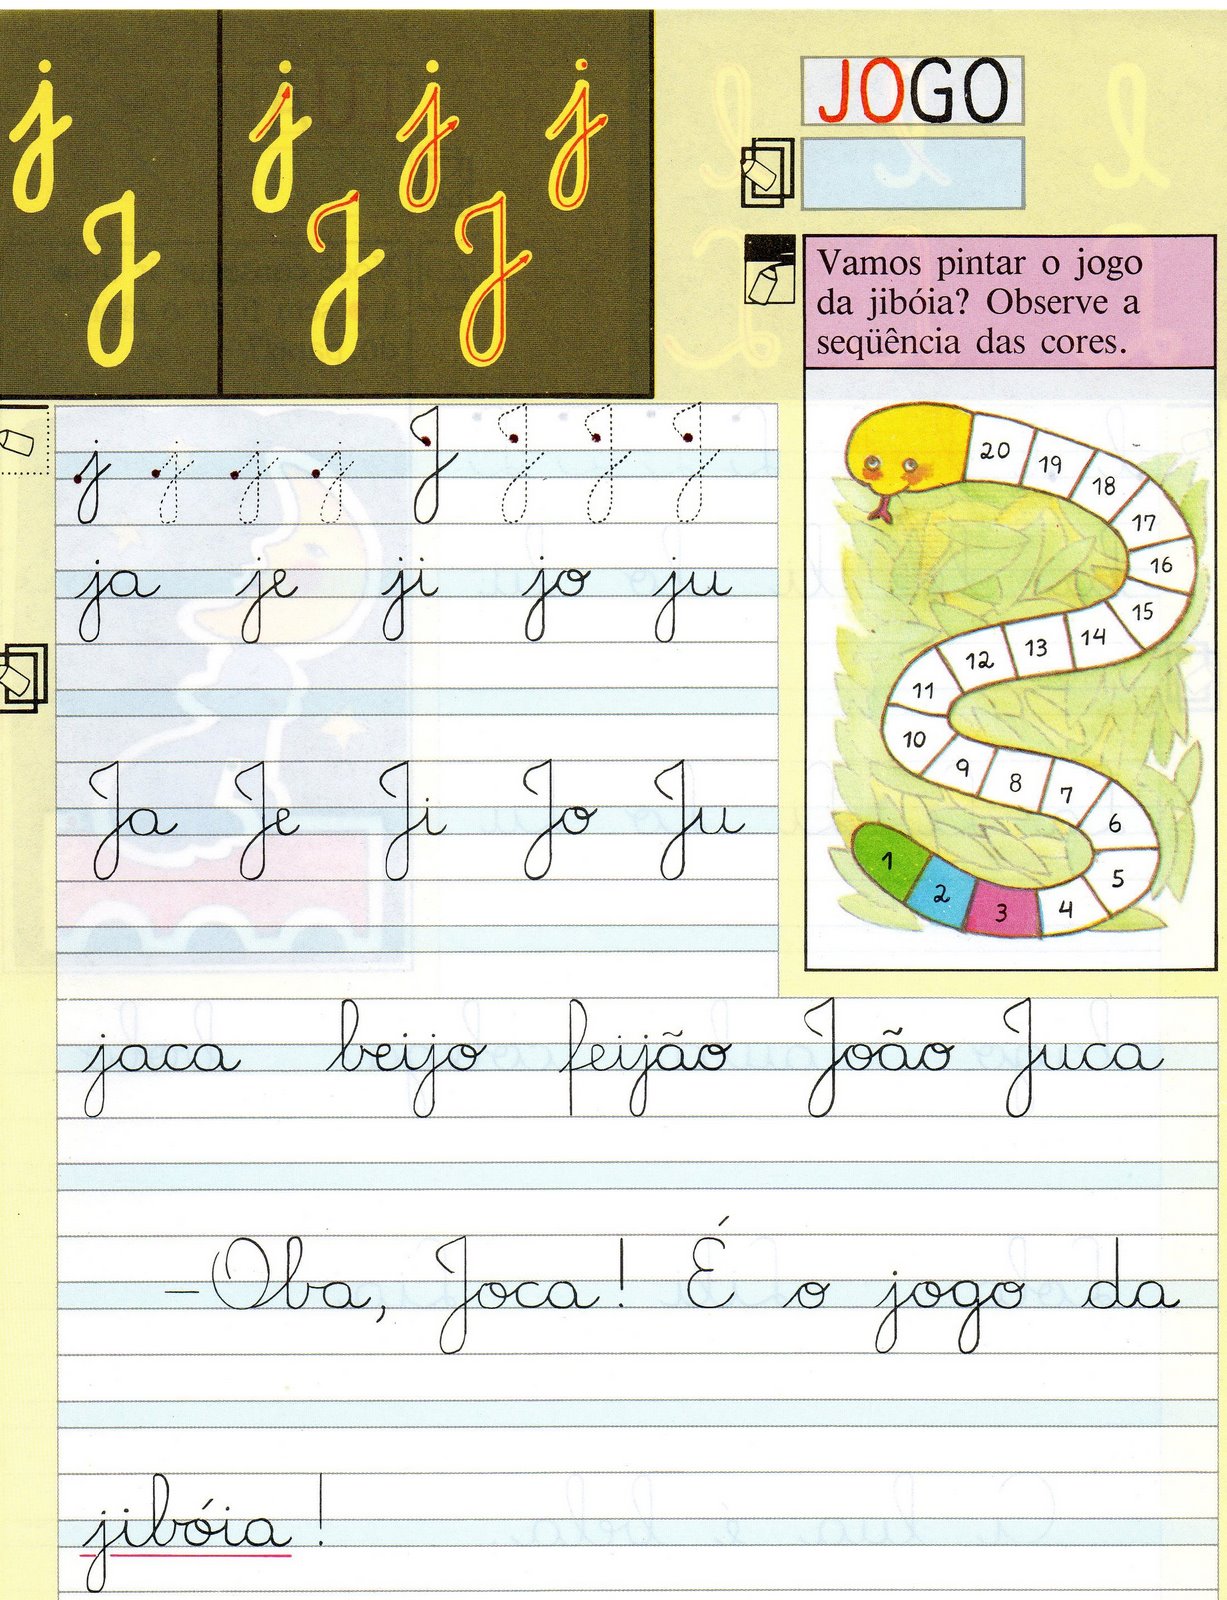 j j j j
J J J
JOGO
Vamos pintar o jogo
da jibóia? Observe a
seqüência das cores.
j j j j J J J J
ja je ji jo ju
Ja Je Ji Jo Ju
20 19 18 17 16 15 14 13 12 11 10 9 8 7 6 5 4 3 2 1
jaca beijo feijão João Juca
–Oba, Joca! É o jogo da
jibóia!